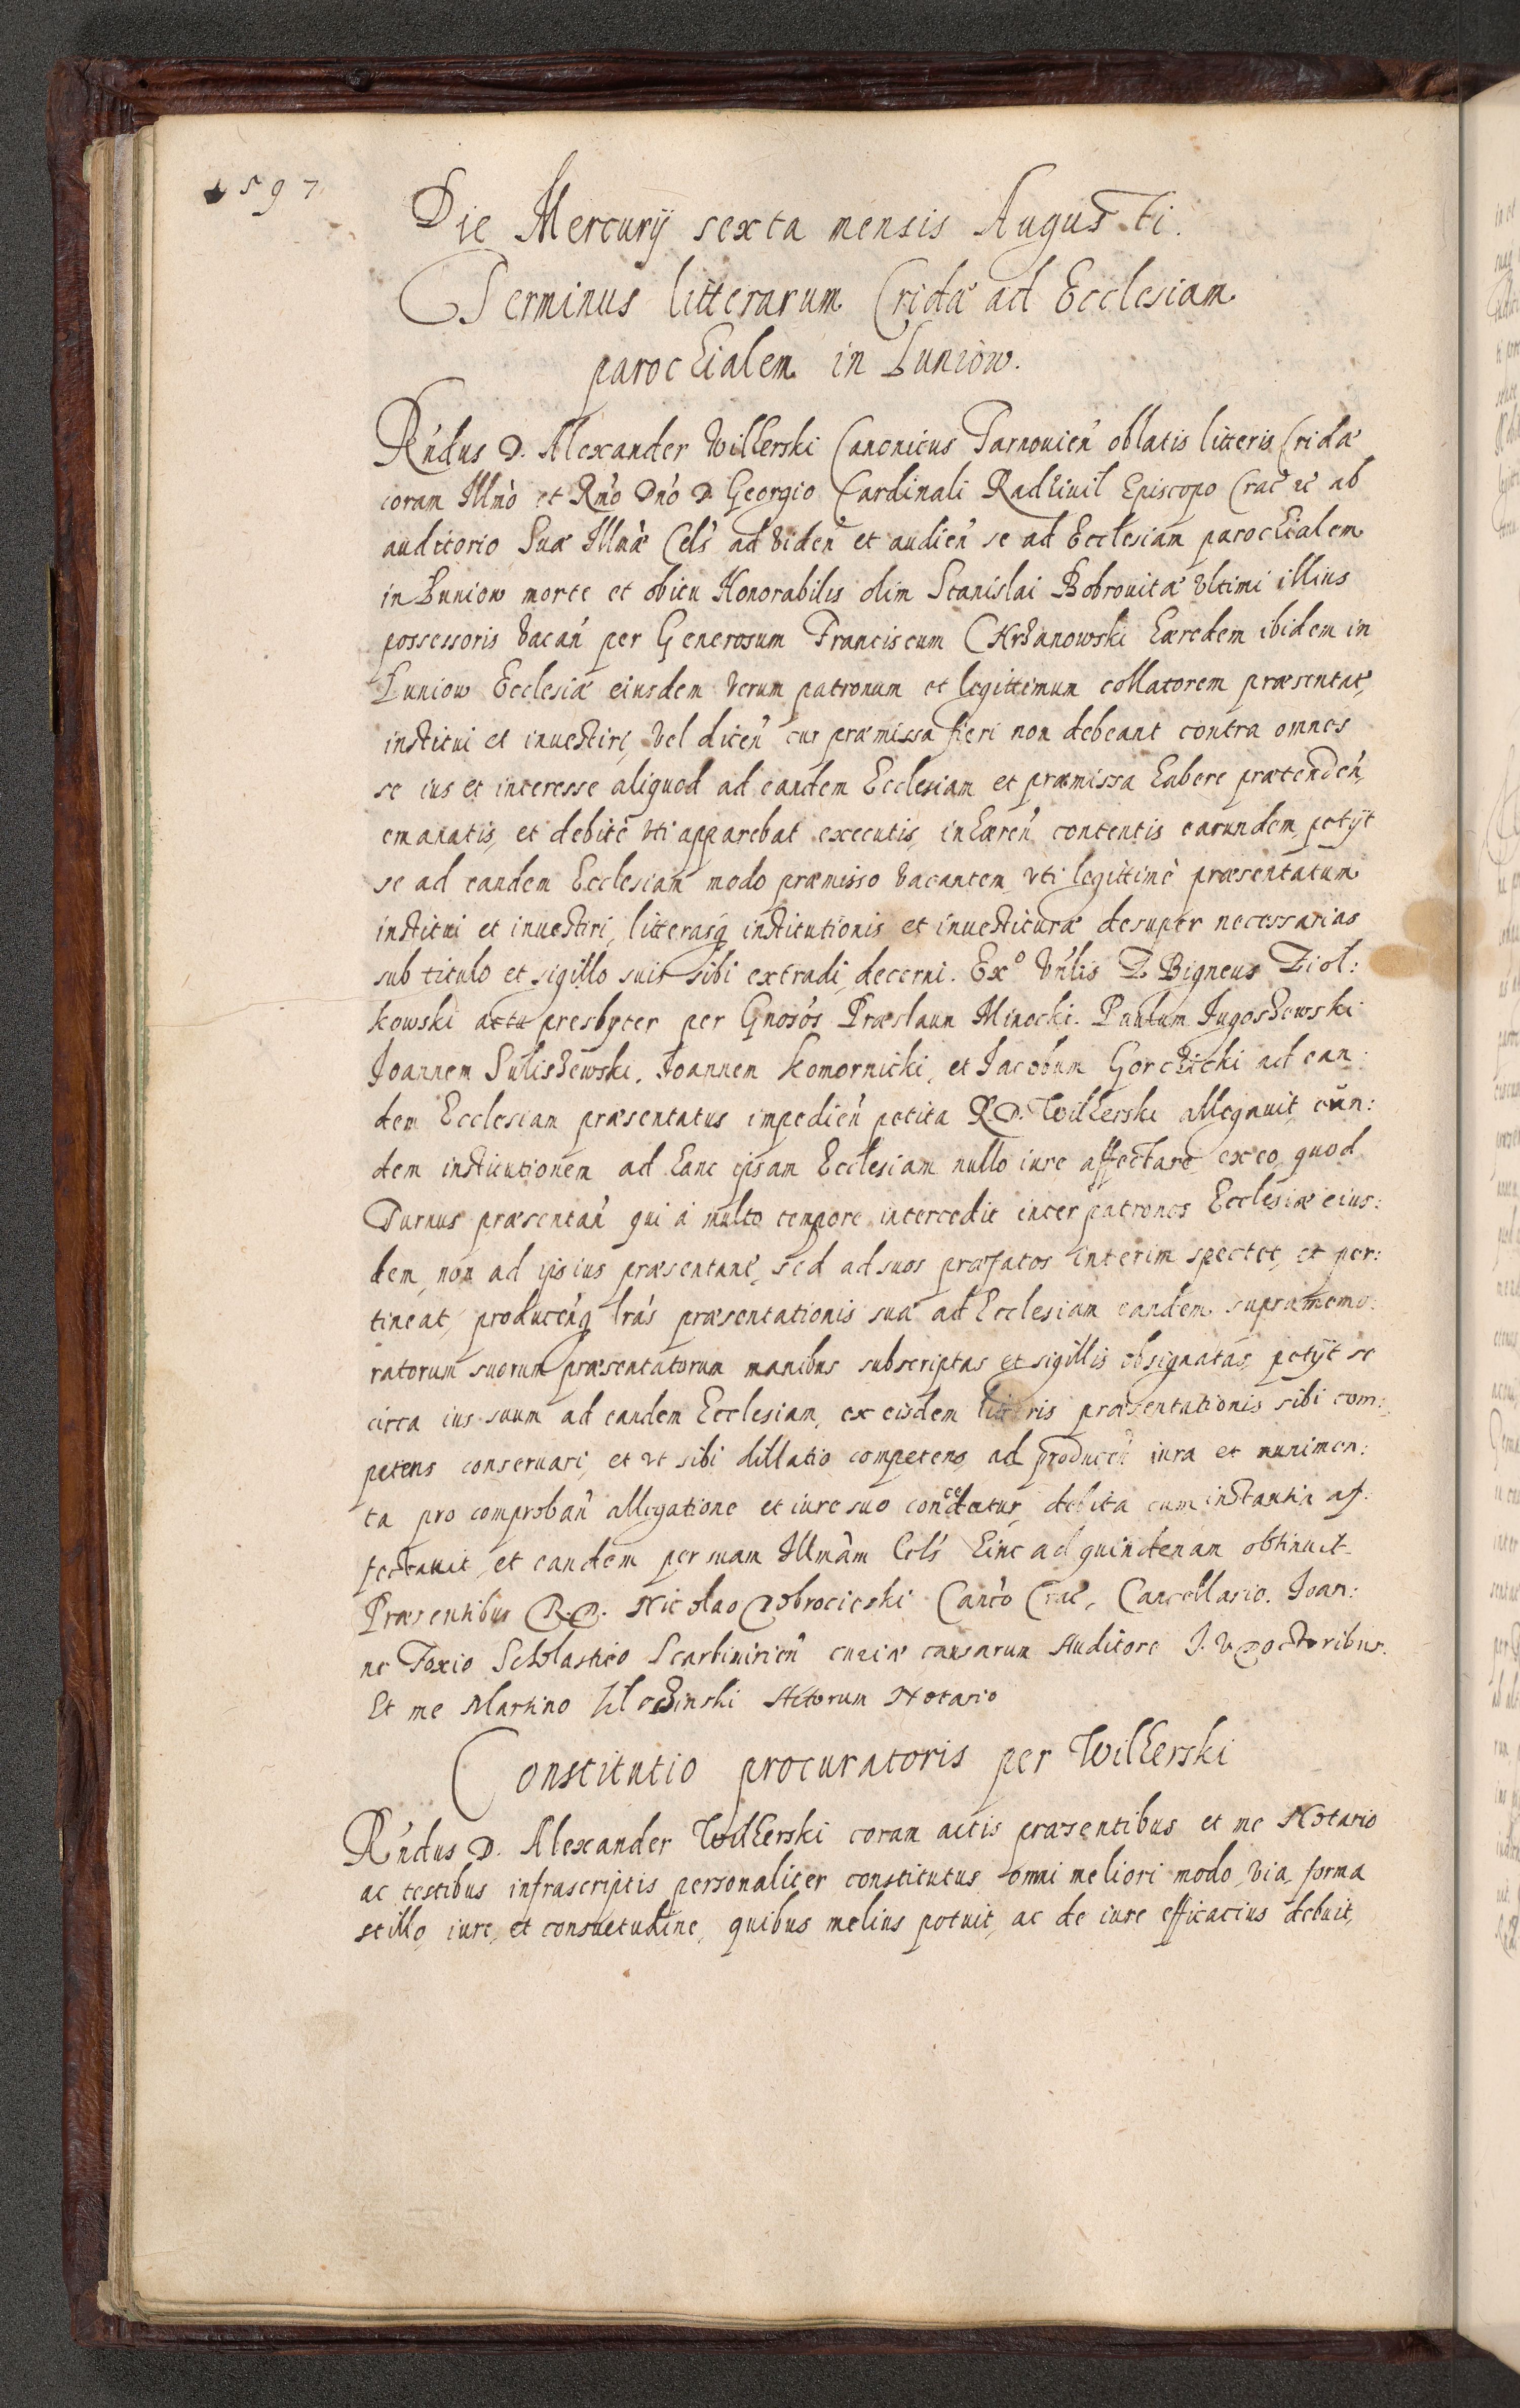 1597
Die Mercurÿ sexta mensis Augusti.
Terminus litterarum Cridæ ad Ecclesiam
parochialem in Luniow.
Rńdus D. Alexander Wilkerski Canonicus Tarnouień oblatis litteris Cridæ
coram Illmò et Rmo Dńo D. Georgio Cardinali Radziuil Episcopo Crac̃ ꝛc̃ ab
auditorio Suæ Illmæ Cels̃ ad viden̄ et audień se ad Ecclesiam parochialem
in Luniow morte et obitu Honorabilis olim Stanislai Bobrouita vltimi illius
possessoris vacań per Generosum Franciscum Chrzanowski hæredem ibidem in
Luniow Ecclesiæ eiusdem verum patronum et legittimum collatorem præsentat̃,
institui et inuestiri, vel diceń cur præmissa fieri non debeant contra omnes
se ius et interesse aliquod ad eandem Ecclesiam et præmissa habere prætendeń,
emanatis, et debitè vti apparebat executis, inhæreń contentis earundem, petÿt
se ad eandem Ecclesiam modo præmisso vacantem, vti legittimè præsentatum
institui et inuestiri, litterasq̃ institutionis et inuestituræ desuper necessarias
sub titulo et sigillo suis sibi extradi, decerni. Exº Vńlis D. Zigneus Ziol:
kowski actu presbyter per Gnosós Præslaum Minocki. Paulum Jugoszowski
Joannem Suliszewski. Joannem Komornicki, et Jacobum Gorczicki ad ean:
dem Ecclesiam præsentatus impedień petita R.D. Wilkerski allegauit, eun:
dem institutionem ad hanc ipsam Ecclesiam nullo iure affectare, ex eo, quod
Turnus præsentań qui à multo tempore intercedit inter patronos Ecclesiæ eius:
dem, non ad ipsius præsentant̃, sed ad suos præfatos interim spectet, et per:
tineat, producénq̃ lrás præsentationis suæ ad Ecclesiam eandem supramemo:
ratorum suorum præsentatorum manibus subscriptas et sigillis obsignatas, petÿt se
circa ius suum ad eandem Ecclesiam, ex eisdem litteris præsentationis sibi com:
petens conseruari, et vt sibi dillatio competens ad produceń iura et munimen:
ta pro comprobań allegatione et iure suo concedatur, debita cum instantia af:
fectauit, et eandem per suam Illmàm Cels̃ hinc ad quindenam obtinuit.
Præsentibus R.D. Nicolao Dobrocieski Cańco Crac̃, Cancellario. Joan:
ne Foxio Scholastico Scarbimirień curiæ causarum Auditore J. V. Doctoribus.
Et me Martino Izdbinski Actorum Notario
Constitutio procuratoris per Wilkerski
Rńdus D. Alexander Wilkerski coram actis præsentibus et me Notario
ac testibus infrascriptis personaliter constitutus omni meliori modo, via, forma
stillo, iure, et consuetudine, quibus melius potuit, ac de iure efficacius debuit,